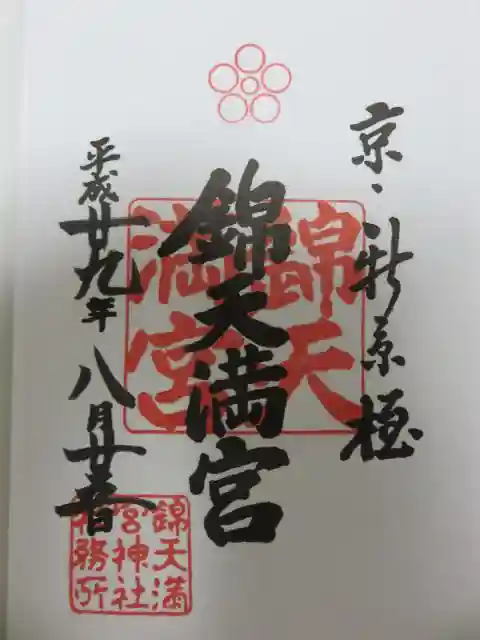 京・新京極
錦天満宮
錦天
満宮
平成廿九年 八月廿日
錦天満
宮神社
社務所